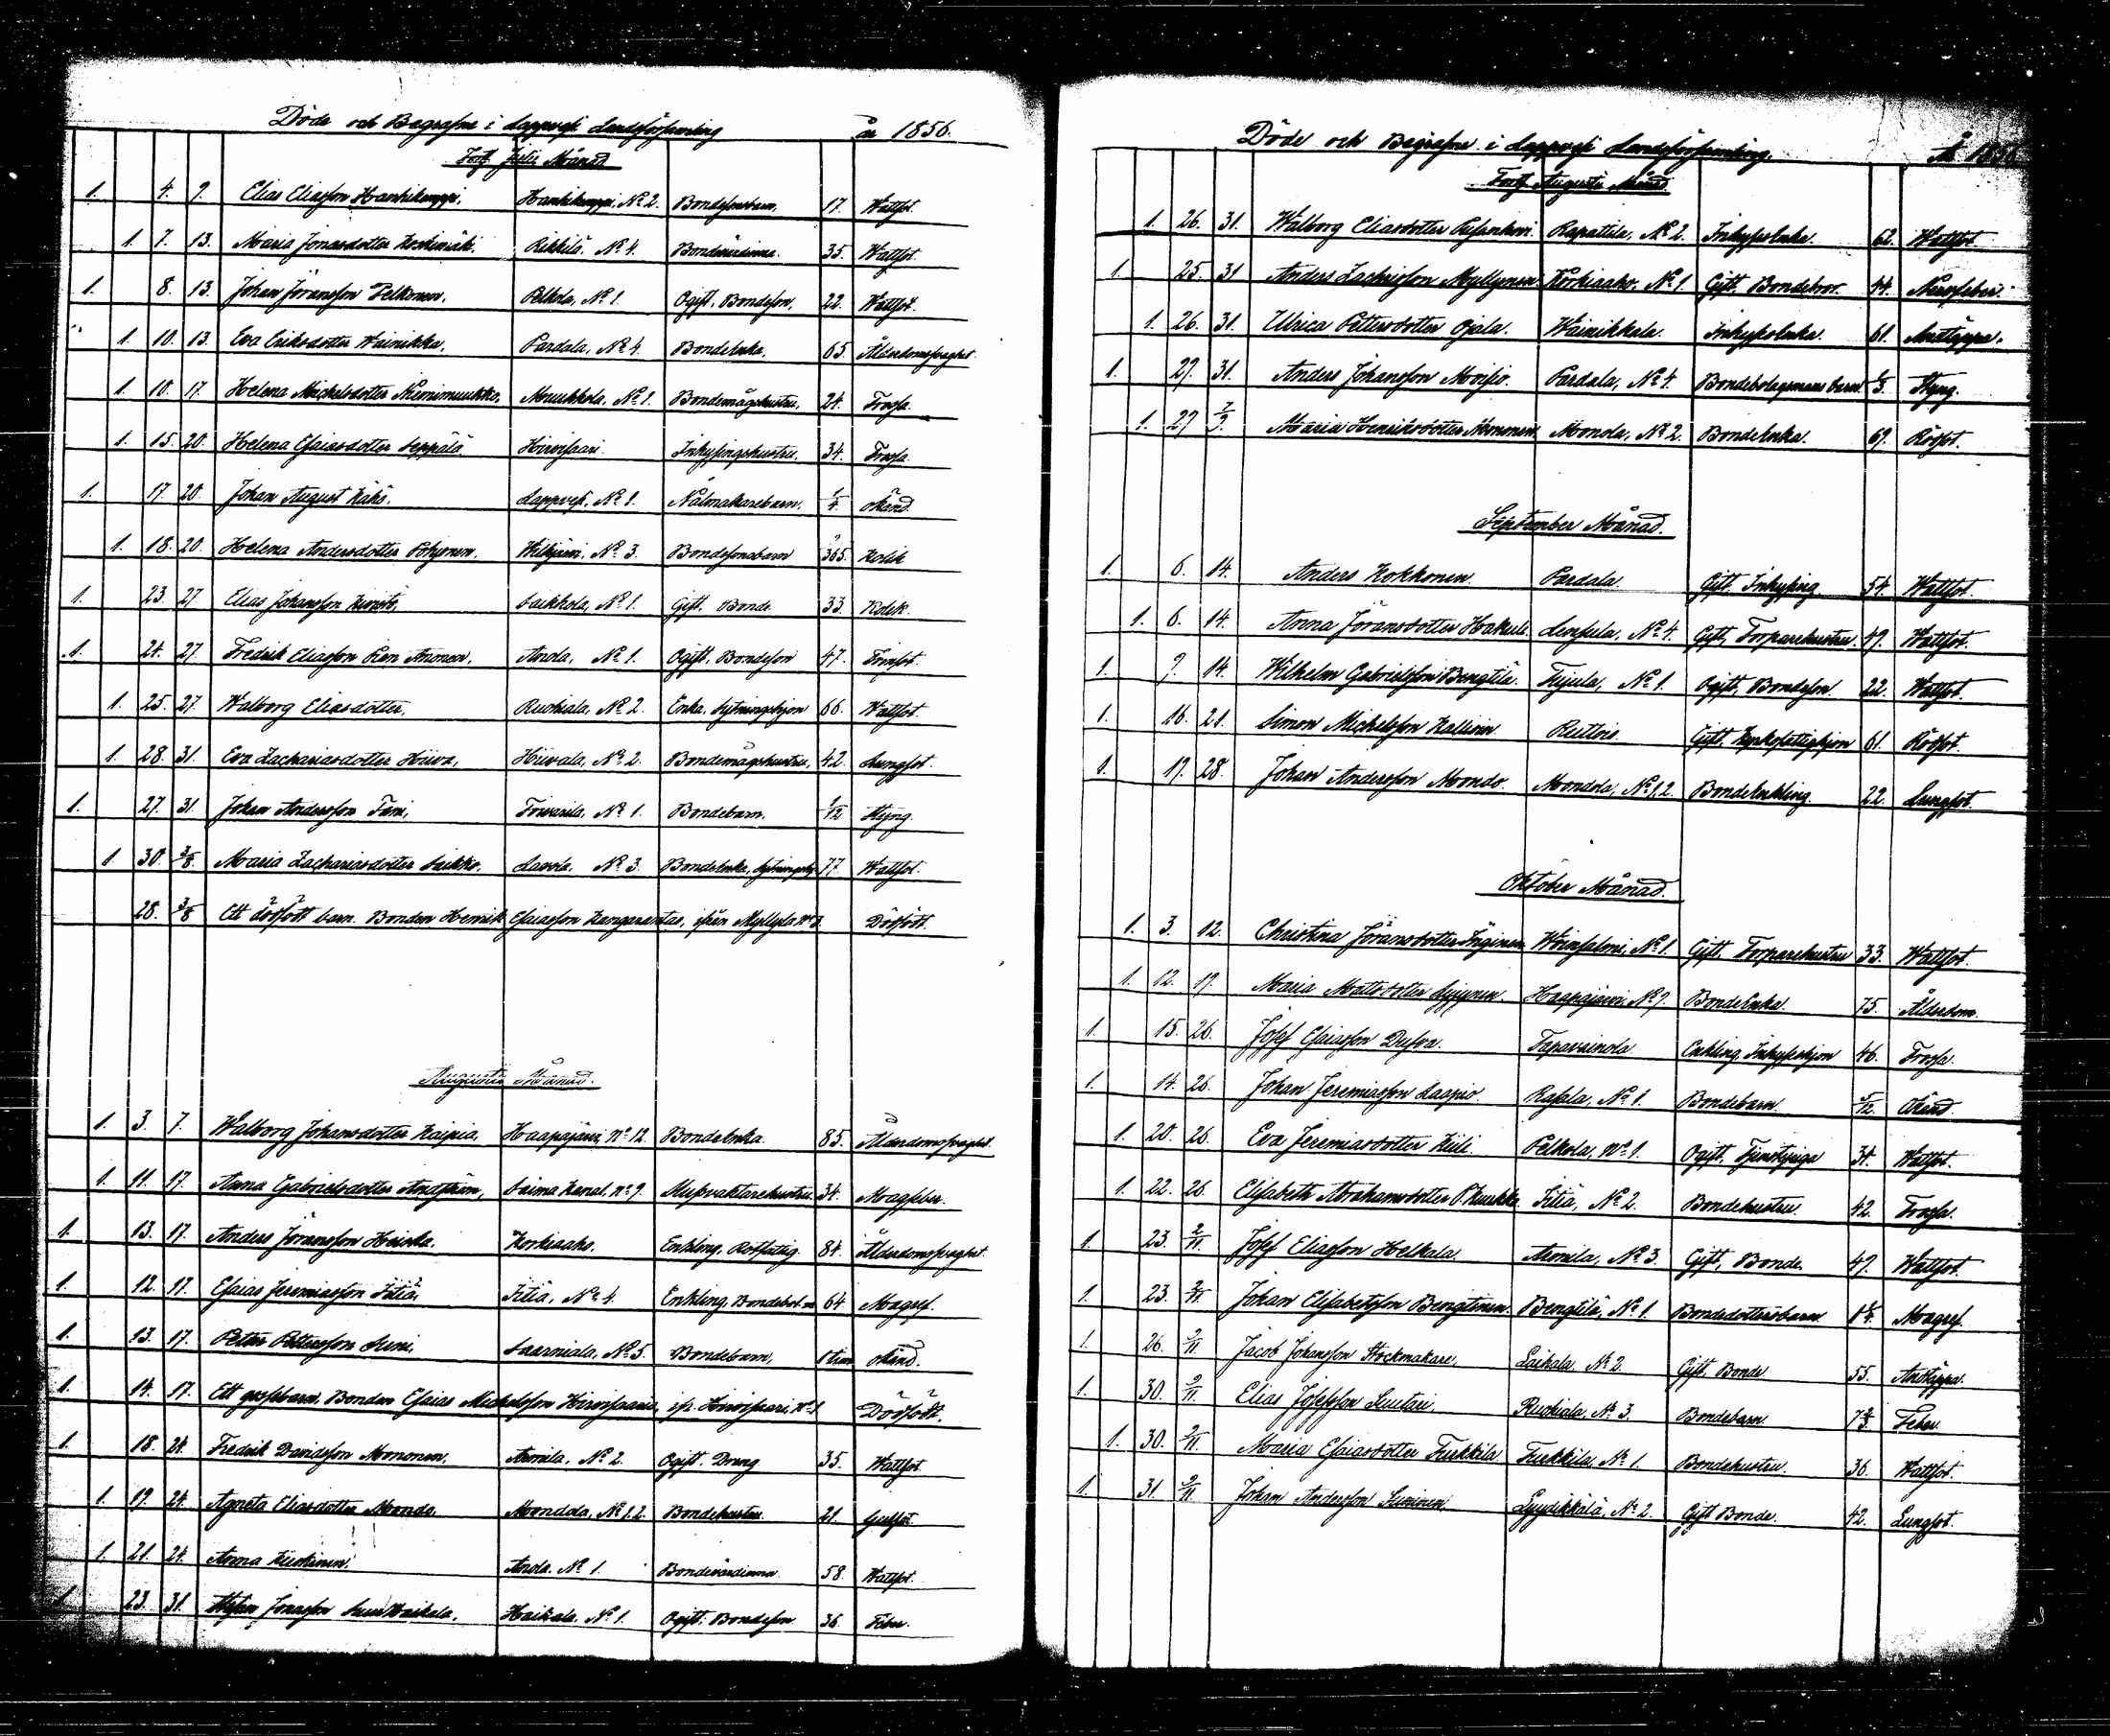 Döde och Begrafne i Lappvesi Landsförsamling år 1856.
Forts. Julii Månad
1. 4. 9. Elias Eliasson Hanhikemppi, Hanhikemppi, No 2. Bondesonsbarn, 17. Wattsot.
1. 7. 13. Maria Jonasdotter Kockimäki. Rikkilä. No 4. Bondvärdinna. 35. Wattsot.
1. 8. 13. Johan Göransson Pelkonen. Pelkola, No 1. Ogift. Bondeson, 22. Wattsot.
1. 10. 13. Eva Eriksdotter Wainikka, Pardala, No 4. BondeEnka, 65. Ålderdomssvaghet
1. 10. 17. Helena Mickelsdotter Niemimuukko, Muukkola, No 1. Bondemågshustru, 24. Frossa.
1. 15. 20. Helena Esaiasdotter Seppälä Hirvisaari. Inhysingshustru, 34. Frossa.
1. 17. 20. Johan August Kähö. Lappvesi. No 1. Nålmakarebarn. 1/4. okänd.
1. 18. 20. Helena Andersdotter Pohjonen. Wilkjärvi. No 3. Bondesonsbarn 365. Kolik
1. 23. 27 Elias Johansson Saikkola, No 1. Gift. Bonde 33. Kolik.
1. 24. 27. Fredrik Eliasson Anonen, Anola, No 1. Ogift. Bondeson 47.
1. 25. 27. Walborg Eliasdotter, Ruohiala, No 2. Enka. Sytningshjon 66. Wattsot
1. 28. 31. Eva Zachariasdotter Hiiva, Hiivala, No 2. Bondemågshustru, 42. Lungsot.
1. 27. 31 Johan Andersson Toivarila, No 1. Bondebarn. 1/12 Styng.
1. 30. 3/8 Maria Zachariasdotter Saikko. Lavola. No 3. BondeEnka, Sytningshj. 77. Wattsot.
28. 3/8 Ett dödfödt barn. Bonden Henrik Esaiasson Kangasrantas, ifrån Myllylä No 3. Dödfödt.
Augusti Månad.
1. 3. 7. Walborg Johansdotter Kaipia. Haapajärvi, No 12. BondeEnka. 85. Ålderdomssvaghet.
1. 11. 17. Anna Gabrielsdotter Saima Kanal No 9. Slussvaktarehustru. 34. Magfeber.
1. 13. 17. Anders Göransson Korkiaaho. Enkling. Rotfattig. 84. Ålderdomssvaghet.
1. 12. 17. Esaias Jeremiasson Iitiä. Iitiä, No 4. Enkling, Bondebol.m 64 Magref.
1. 13. 17. Petter Pettersson Suni, Saarniala, No 5. Bondebarn, 1 tim okänd.
1. 14. 17. Ett gossebarn, Bonden Esaias Mickelsson Hirvisaaris, ifr. Hirvisaari, No 1 Dödfödt.
1. 18. 24. Fredrik Davidsson Mononen, Armila, No 2. Ogift. Dreng 35. Wattsot
1. 19. 24. Agneta Eliasdotter Mondo. Mondola, No 1.2. Bondehustru. 21. Gulsot.
1. 21. 24. Anna Kiiskinen. Anola. No 1. Bondvärdinna 58. Wattsot.
1. 23. 31. Stefan Jonasson Haikala. Haikala. No 1. Ogift. Bondeson 36. Feber.
Döde och Begrafne i Lappvesi Landsförsamling. År 1856
Forts. Augusti Månad
1. 26. 31. Walborg Eliasdotter Rapattila, No 2. Inhyses Enka. 62. Wattsot
1. 25. 31 Anders Zachrisson Myllynen Korkiaaho. No 1. Gift. Bondebror. 44. Nervfeber.
1. 26. 31. Ulrica Pettersdotter Ojala. Wainikkala. Inhyses Enka. 61. Andtäppa.
1. 27. 31. Anders Johansson Moisio. Pardala, No 4. Bondebolagsmans barn. 1/3. Styng.
1. 27 7/9. Maria Henriksdotter Mononen Monola, No 2. BondeEnka. 69. Rödsot.
September Månad.
1. 6. 14. Anders Kokkonen Pardala. Gift. Inhysing 54. Wattsot.
1. 6. 14. Anna Göransdotter Hakuli. Lensula, No 4. Gift, Torparehustru. 49. Wattsot.
1. 9. 14. Wilhelm Gabrielsson Bengtilä. Tujula, No 1. Ogift, Bondeson 22. Wattsot.
1. 16. 21. Simon Mickelsson Kallioin Ruttois Gift, Kyrkofattighjon 61. Rödsot.
1. 19. 28. Johan Andersson Mondo. Mondola, No 1,2. BondeEnkling. 22. Lungsot.
Oktober Månad.
1. 3. 12. Christina Göransdotter Inginen Woisalmi, No 1. Gift. Torparehustru 33. Wattsot.
1. 12. 19. Maria Mattsdotter Haapajärvi, No 9. BondeEnka. 75. Ålderdom.
1. 15. 26. Josef Esaiasson Tapavainola. Enkling, Inhyseshjon 46. Frossa.
1. 14. 26. Johan Jeremiasson Laapio. Rasala, No 1. Bondebarn 5/12. Okänd.
1. 20. 26. Eva Jeremiasdotter Kiili. Pelkola, No 1. Ogift, Tjenstepiga 34. Wattsot.
1. 22. 26. Elisabeth Abrahamsdotter Iitiä, No 2. Bondehustru. 42. Frossa.
1. 23. 2/11. Josef Eliasson Helkala Armila, No 3. Gift, Bonde. 49. Wattsot.
1. 23. 2/11. Johan Elisabetsson Bengtinen. Bengtilä, No 1. Bondedottersbarn. Magref.
1. 26. 2/11 Jacob Johansson Stockmakare. Laikala. No 2. Gift. Bonde 55. Andtäppa.
1. 30. 2/11. Elias Josefsson Suutari. Ruohiala, No 3. Bondebarn Feber.
1. 30. 2/11. Maria Esaiasdotter Turkkila Turkkila, No 1. Bondehustru. 36. Wattsot.
1. 31. 2/11. Johan Andersson Suninen, Lyydikkälä, No 2. Gift Bonde. 42. Lungsot.